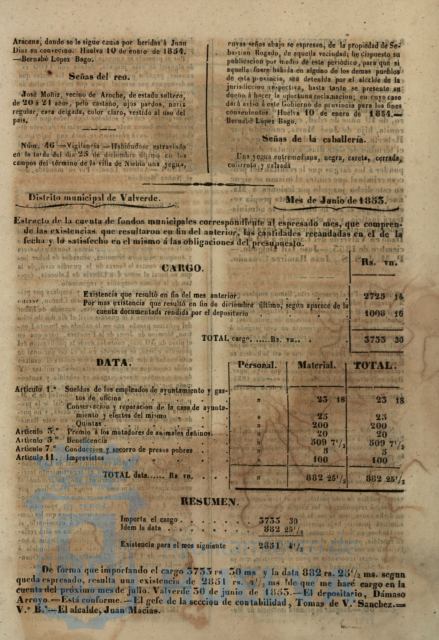 Aracena, donde se le sigue causa por heridas á Juan
Diaz su convecino. Huelva 10 de enero de 1854.
—Bernabé Lopez Bago.
Señas del reo.
José Moñiz, vecino de Aroche, de estado soltero,
de 20 á 24 años, pelo castaño, ojos pardos, nariz
regular, cara delgada, color claro, vestido al uso del
pais.
Núm. 46 —Vigilancia —Habiéndose estraviado
en la tarde del dia 25 de diciembre último en los
campos del término de la villa de Niebla una yegua,
cuyas señas abajo se espresan, de la propiedad de Se-
bastian Rogado, de aquella vecindad; he dispuesto su
publicacion por medio de este periódico, para que si
aquella fuere habida en alguno de los demas pueblos
de esta provincia, sea detenida por el alcalde de la
jurisdiccion respectiva, hasta tanto se presente su
dueño á hacer la oportuna reclamacion; en cuyo caso
dará aviso á este Gobierno de provincia para los fines
convenientes. Huelva 10 de enero de 1854.—
Bernabé Lopez Bago.
Señas de la caballería.
Una yegua estremeñana, negra, careta, cerrada,
y calzada
Distrito municipal de Valverde.
Mes de Junio de 1853.
Estracto de la cuenta de fondos municipales correspondiente al espresado mes, que compren-
de las existencias que resultaron en fin del anterior, las cantidades recaudadas en el de la
fecha y lo satisfecho en el mismo á las obligaciones del presupuesto.
CARGO.
Rs. vn.
Existencia que resultó en fin del mes anterior. 2725 14
Por mas existencia que resultó en fin de diciembre último, segun aparece de la
cuenta documentada rendida por el depositario 1008 16
TOTAL cargo......Rs. vn. . 3733 30
DATA.
Personal. Material. TOTAL.
Articulo 1.º Sueldos de los empleados de ayuntamiento y gas-
tos de oficina " 23 18 23 18
Conservacion y reparacion de la casa de ayunta-
miento y efectos del mismo " 25 25
Quintas " 200 200
Articulo 3.º Premio á los matadores de animales dañinos. " 20 20
Articulo 5.º Beneficencia " 509 7½ 509 7½
Articulo 7.º Conduccion y socorro de presos pobres " 5 5
Articulo 11. Imprevistos " 100 100
TOTAL data...... Rs vn. " 882 25½ 882 25½
RESUMEN.
Importa el cargo 3733 30
Idem la data 882 25½
Existencia para el mes siguiente 2851 4½
De forma que importando el cargo 3733 rs 30 ms y la data 882 rs. 25½ ms. segun
queda espresado, resulta una existencia de 2851 rs. 4½ ms de que me haré cargo en la
cuenta del próximo mes de julio. Valverde 30 de junio de 1853.—El depositario, Dámaso
Arroyo.—Está conforme.—El gefe de la seccion de contabilidad, Tomas de V.ª Sanchez.—
V.º B.º—El alcalde, Juan Macias.